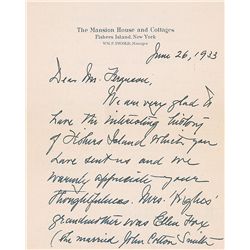 The Mansion House and Cottages
Fishers Island, New York
June 26, 1933
Dear Mr. Ferguson,
We are very glad to
have the interesting history
of Fishers Island which you
have sent us and we
warmly appreciate your
thoughtfulness. Mrs. Hughes'
grandmother was Ellen Fox
(she married John Cotton Smith